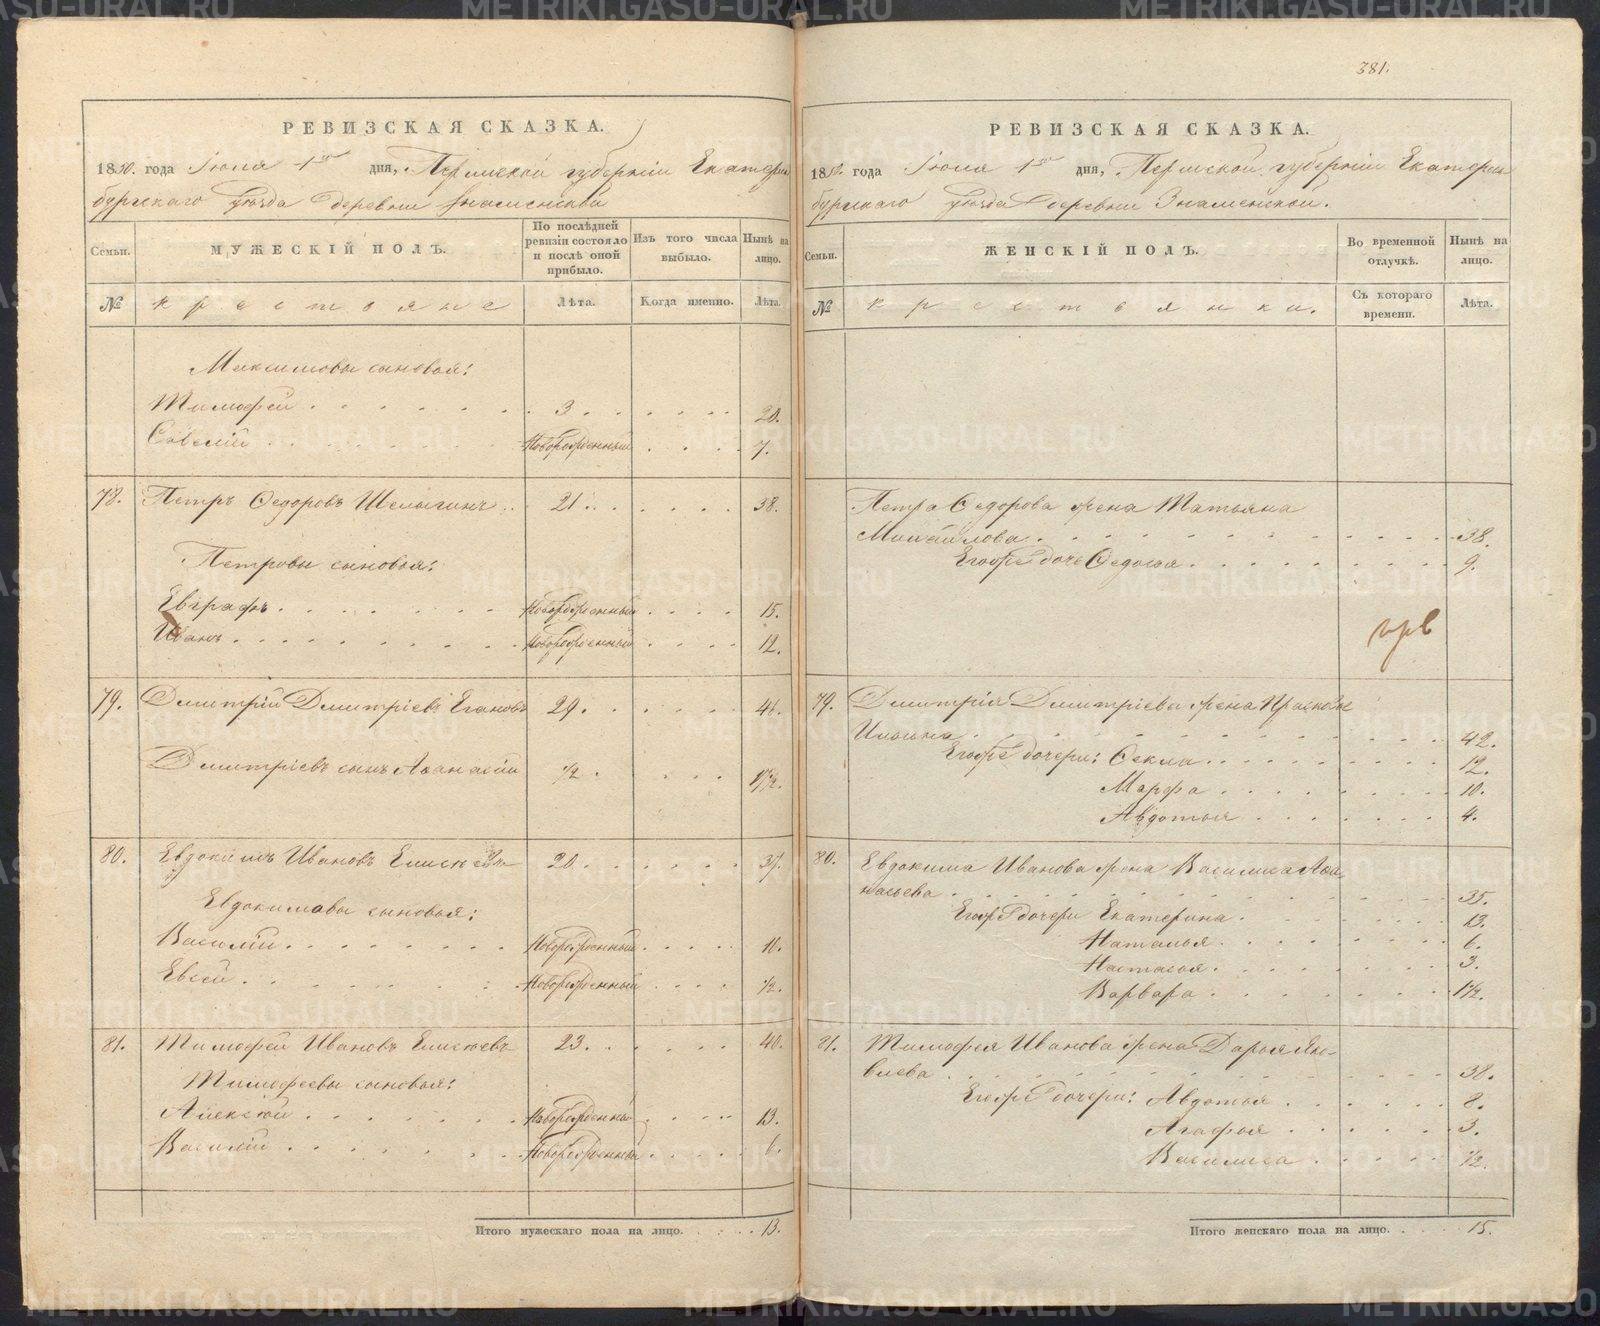 381.
РЕВИЗСКАЯ СКАЗКА.
1850. года Июля 1го дня, Пермской губернiи Екатерин
бургскаго уѣзда деревни Знаменской
Семьи. МУЖЕСКIЙ ПОЛЪ. По послѣдней ревизiи состояло и послѣ оной прибыло. Изъ того числа выбыло. Нынѣ на лицо.
№ крестьяне Лѣта. Когда именно. Лѣта.
Максимовы сыновья:
Тимофей 3. 20.
Савелiй Новорожденный 7.
78. Петръ Федоровъ Шелыгинъ 21. 38.
Петровы сыновья:
Евграфъ Новорожденный 15.
Иванъ Новорожденный 12.
79. Дмитрiй Дмитрiевъ 29. 46.
Дмитрiевъ сынъ Афанасiй 1/2. 17 1/2.
80. Евдокимъ Ивановъ Елисѣевъ 20. 37.
Евдокимовы сыновья:
Василiй Новорожденный 10.
Евсей Новорожденный 1/2.
81. Тимофей Ивановъ Елисѣевъ 23. 40.
Тимофеевы сыновья:
Алексѣй Новорожденный 13.
Василiй Новорожденный 6.
Итого мужескаго пола на лицо. 13.
РЕВИЗСКАЯ СКАЗКА.
1850. года Июля 1го дня, Пермской губернiи Екатерин
бургскаго уѣзда деревни Знаменской.
Семьи. ЖЕНСКIЙ ПОЛЪ. Во временной отлучкѣ. Нынѣ на лицо.
№ крестьянки. Съ котораго времени. Лѣта.
Петра Федорова жена Татьяна
Михайлова 38.
Егожъ дочь Федосья 9.
79. Дмитрiя Дмитрiева жена Прасковья
Ильина 42.
Егожъ дочери: Фекла 12.
Марфа 10.
Авдотья 4.
80. Евдокима Иванова жена Василиса Афа
насьева 35.
Егожъ дочери Екатерина 13.
Наталья 6.
Настасья 3.
Варвара 1 1/2.
81. Тимофея Иванова жена Дарья Яко-
влева 38.
Егожъ дочери: Авдотья 8.
Агафья 3.
Василиса 1/2.
Итого женскаго пола на лицо. 15.
METRIKI.GASO-URAL.RU